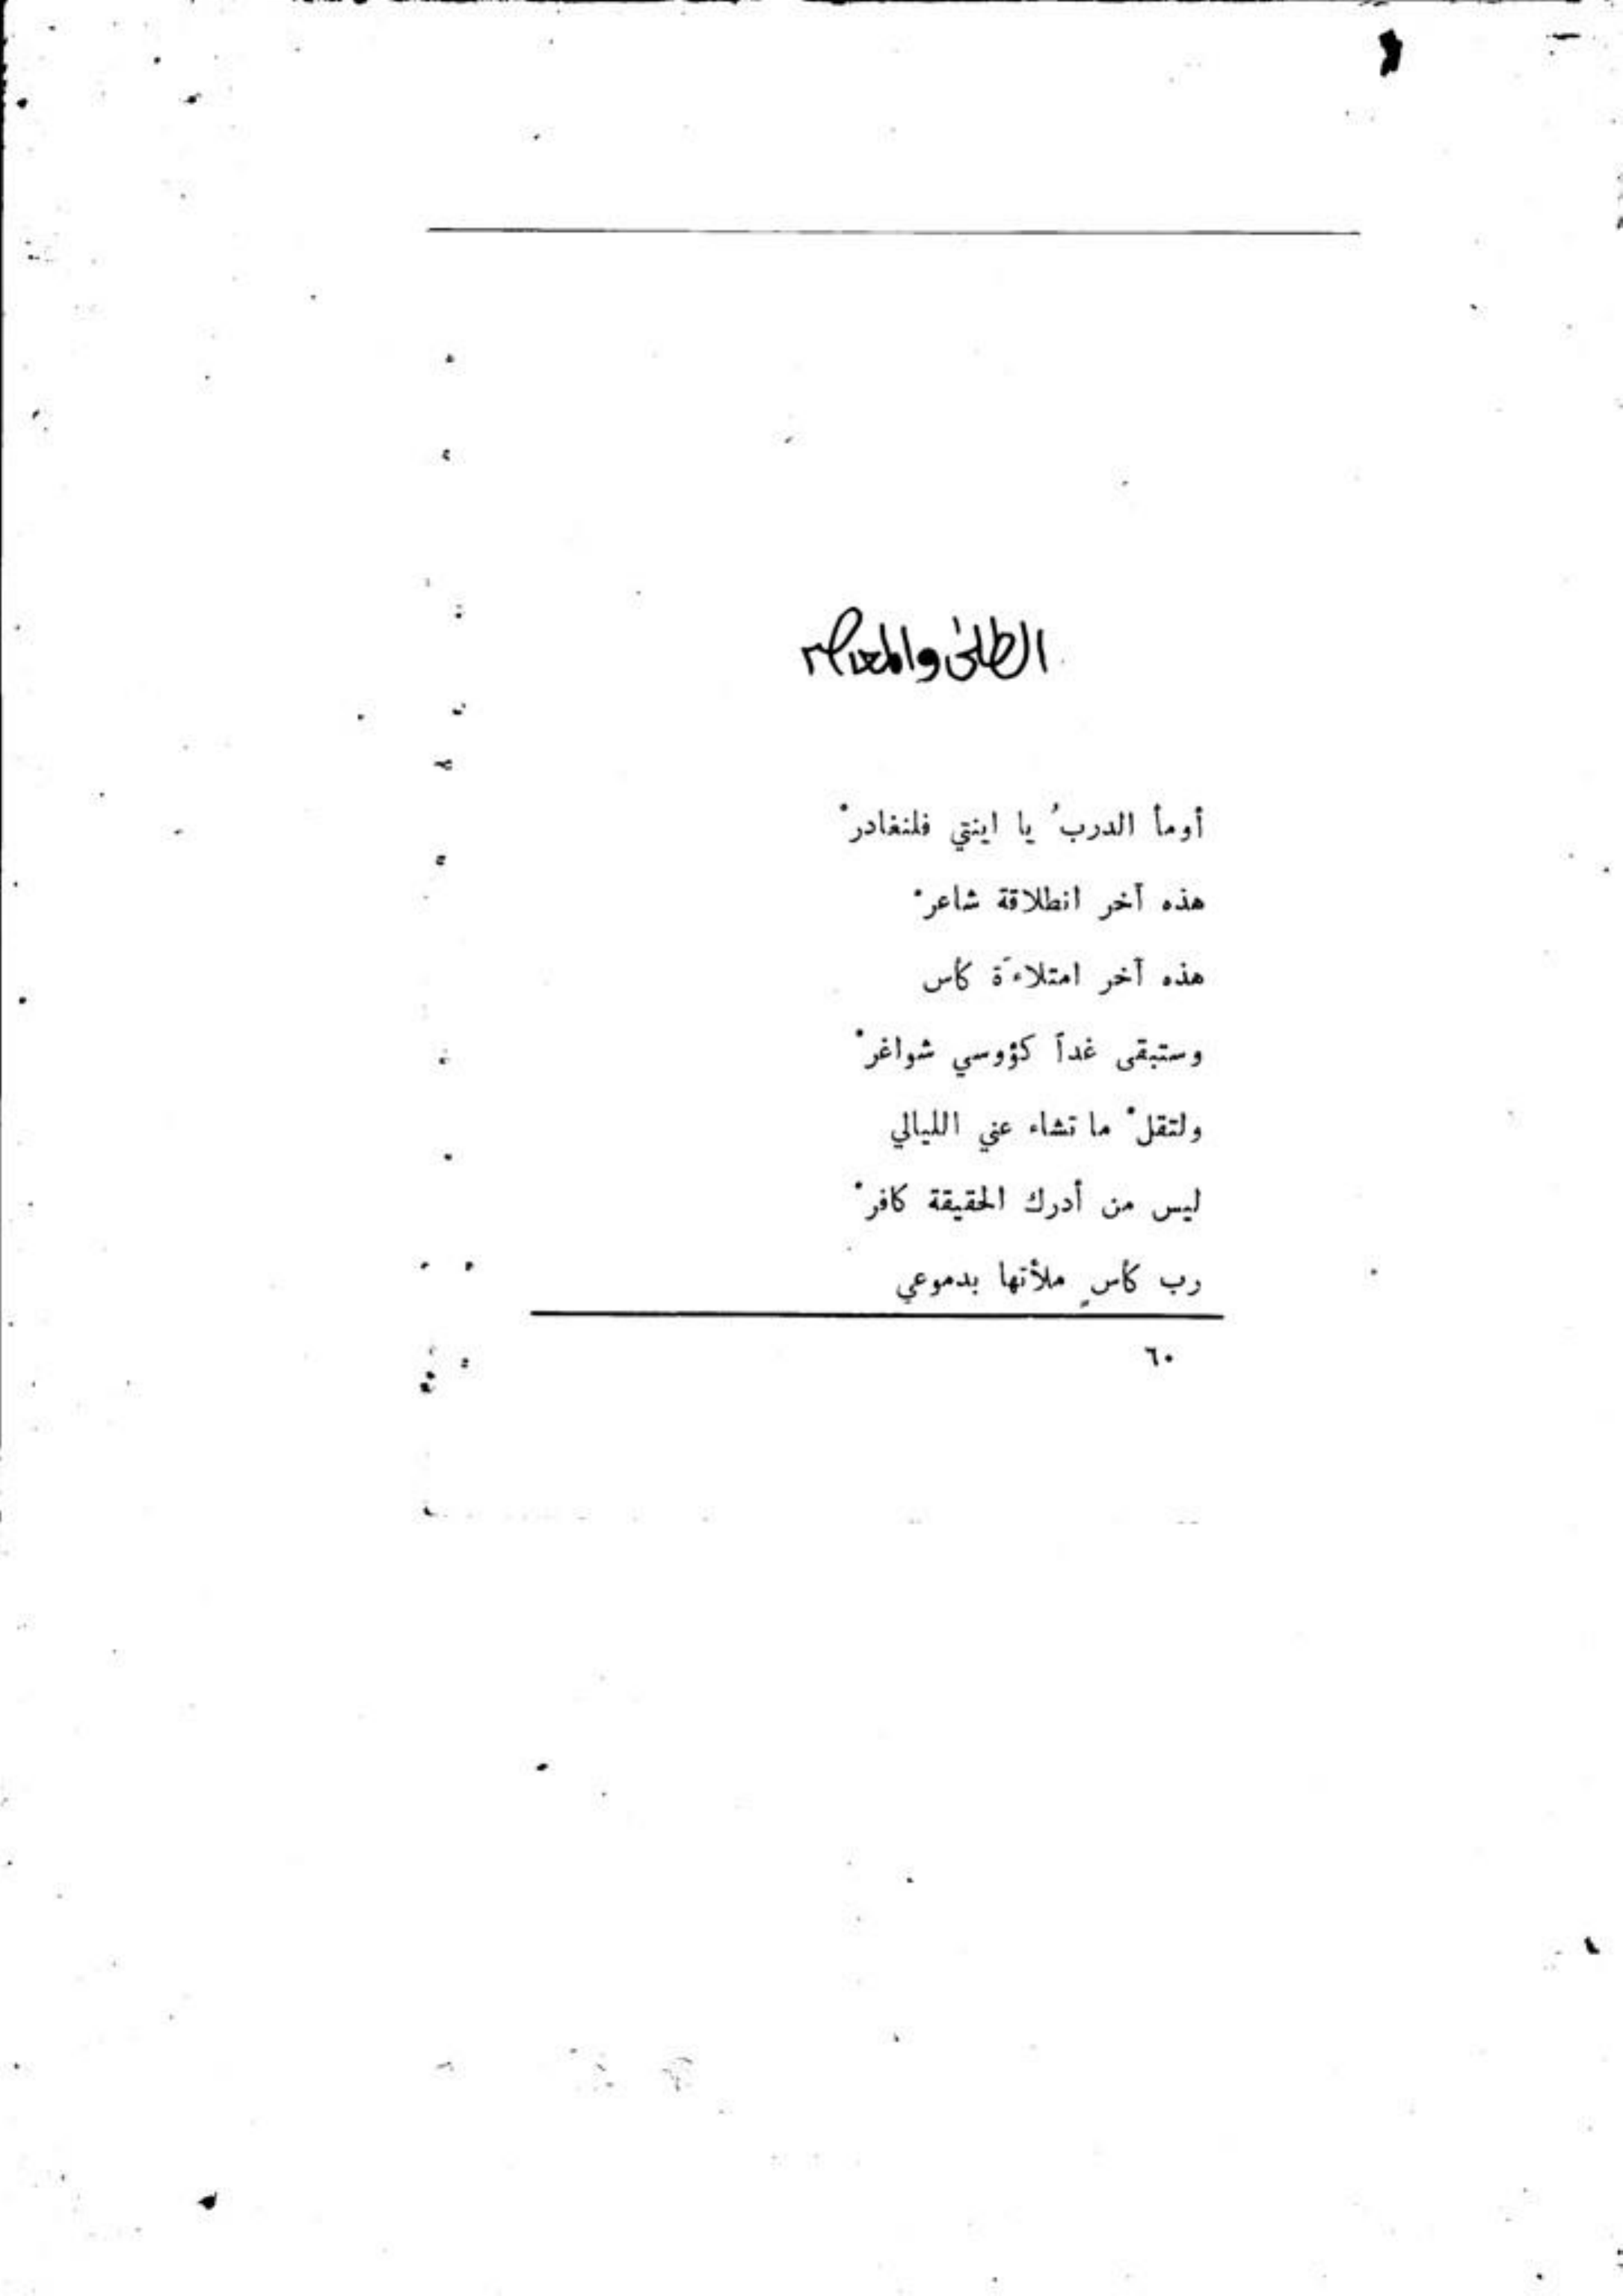 أومأ الدربُ يا اينتي فلنغادرْ
هذه آخر انطلاقة شاعرْ
هذه آخر امتلاءَة كأس
وستبقى غداً كؤوسي شواغرْ
ولتقلْ ما تشاء عني الليالي
ليس من أدرك الحقيقة كافرْ
رب كأسٍ ملأتها بدموعي
٦٠